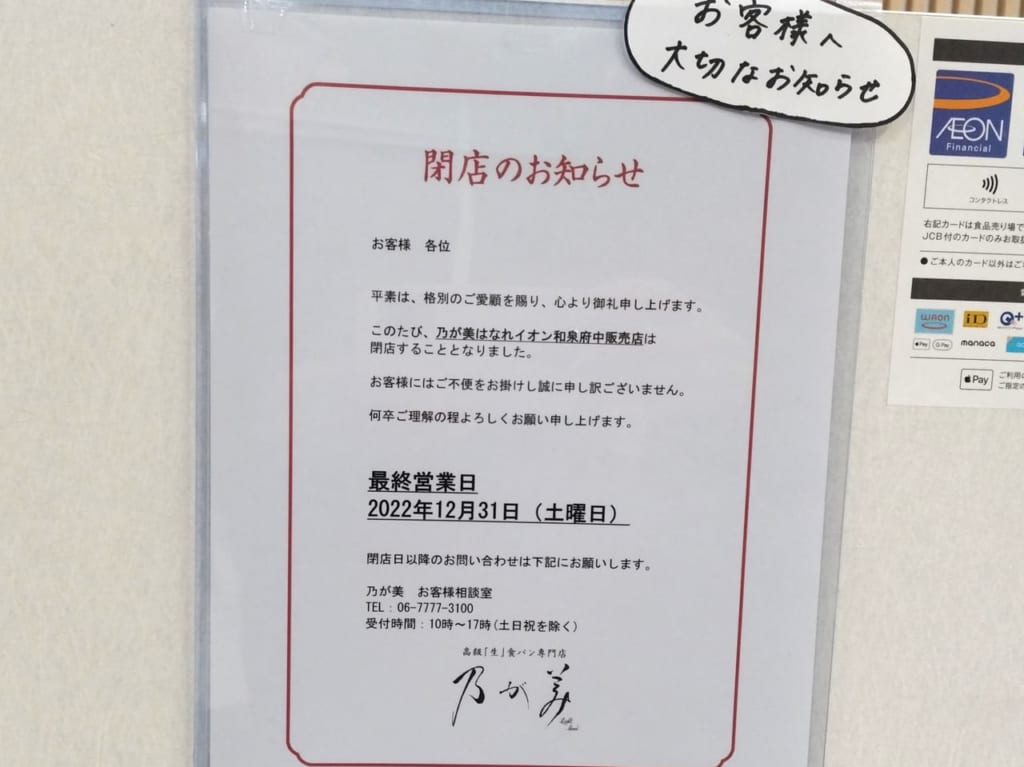 お客様へ
大切なお知らせ
閉店のお知らせ
お客様 各位
平素は、格別のご愛顧を賜り、心より御礼申し上げます。
このたび、乃が美はなれイオン和泉府中販売店は
閉店することとなりました。
お客様にはご不便をお掛けし誠に申し訳ございません。
何卒ご理解の程よろしくお願い申し上げます。
最終営業日
2022年12月31日（土曜日）
閉店日以降のお問い合わせは下記にお願いします。
乃が美 お客様相談室
TEL：06-7777-3100
受付時間：10時～17時(土日祝を除く)
高級「生」食パン専門店
乃が美
AEON
Financial
コンタクトレス
右記カードは食品売り場で
JCB付のカードのみお取扱
●ご本人のカード以外はご
WAON
iD
Apple Pay
G Pay
manaca
Apple Pay
ご利用の
ご指定の